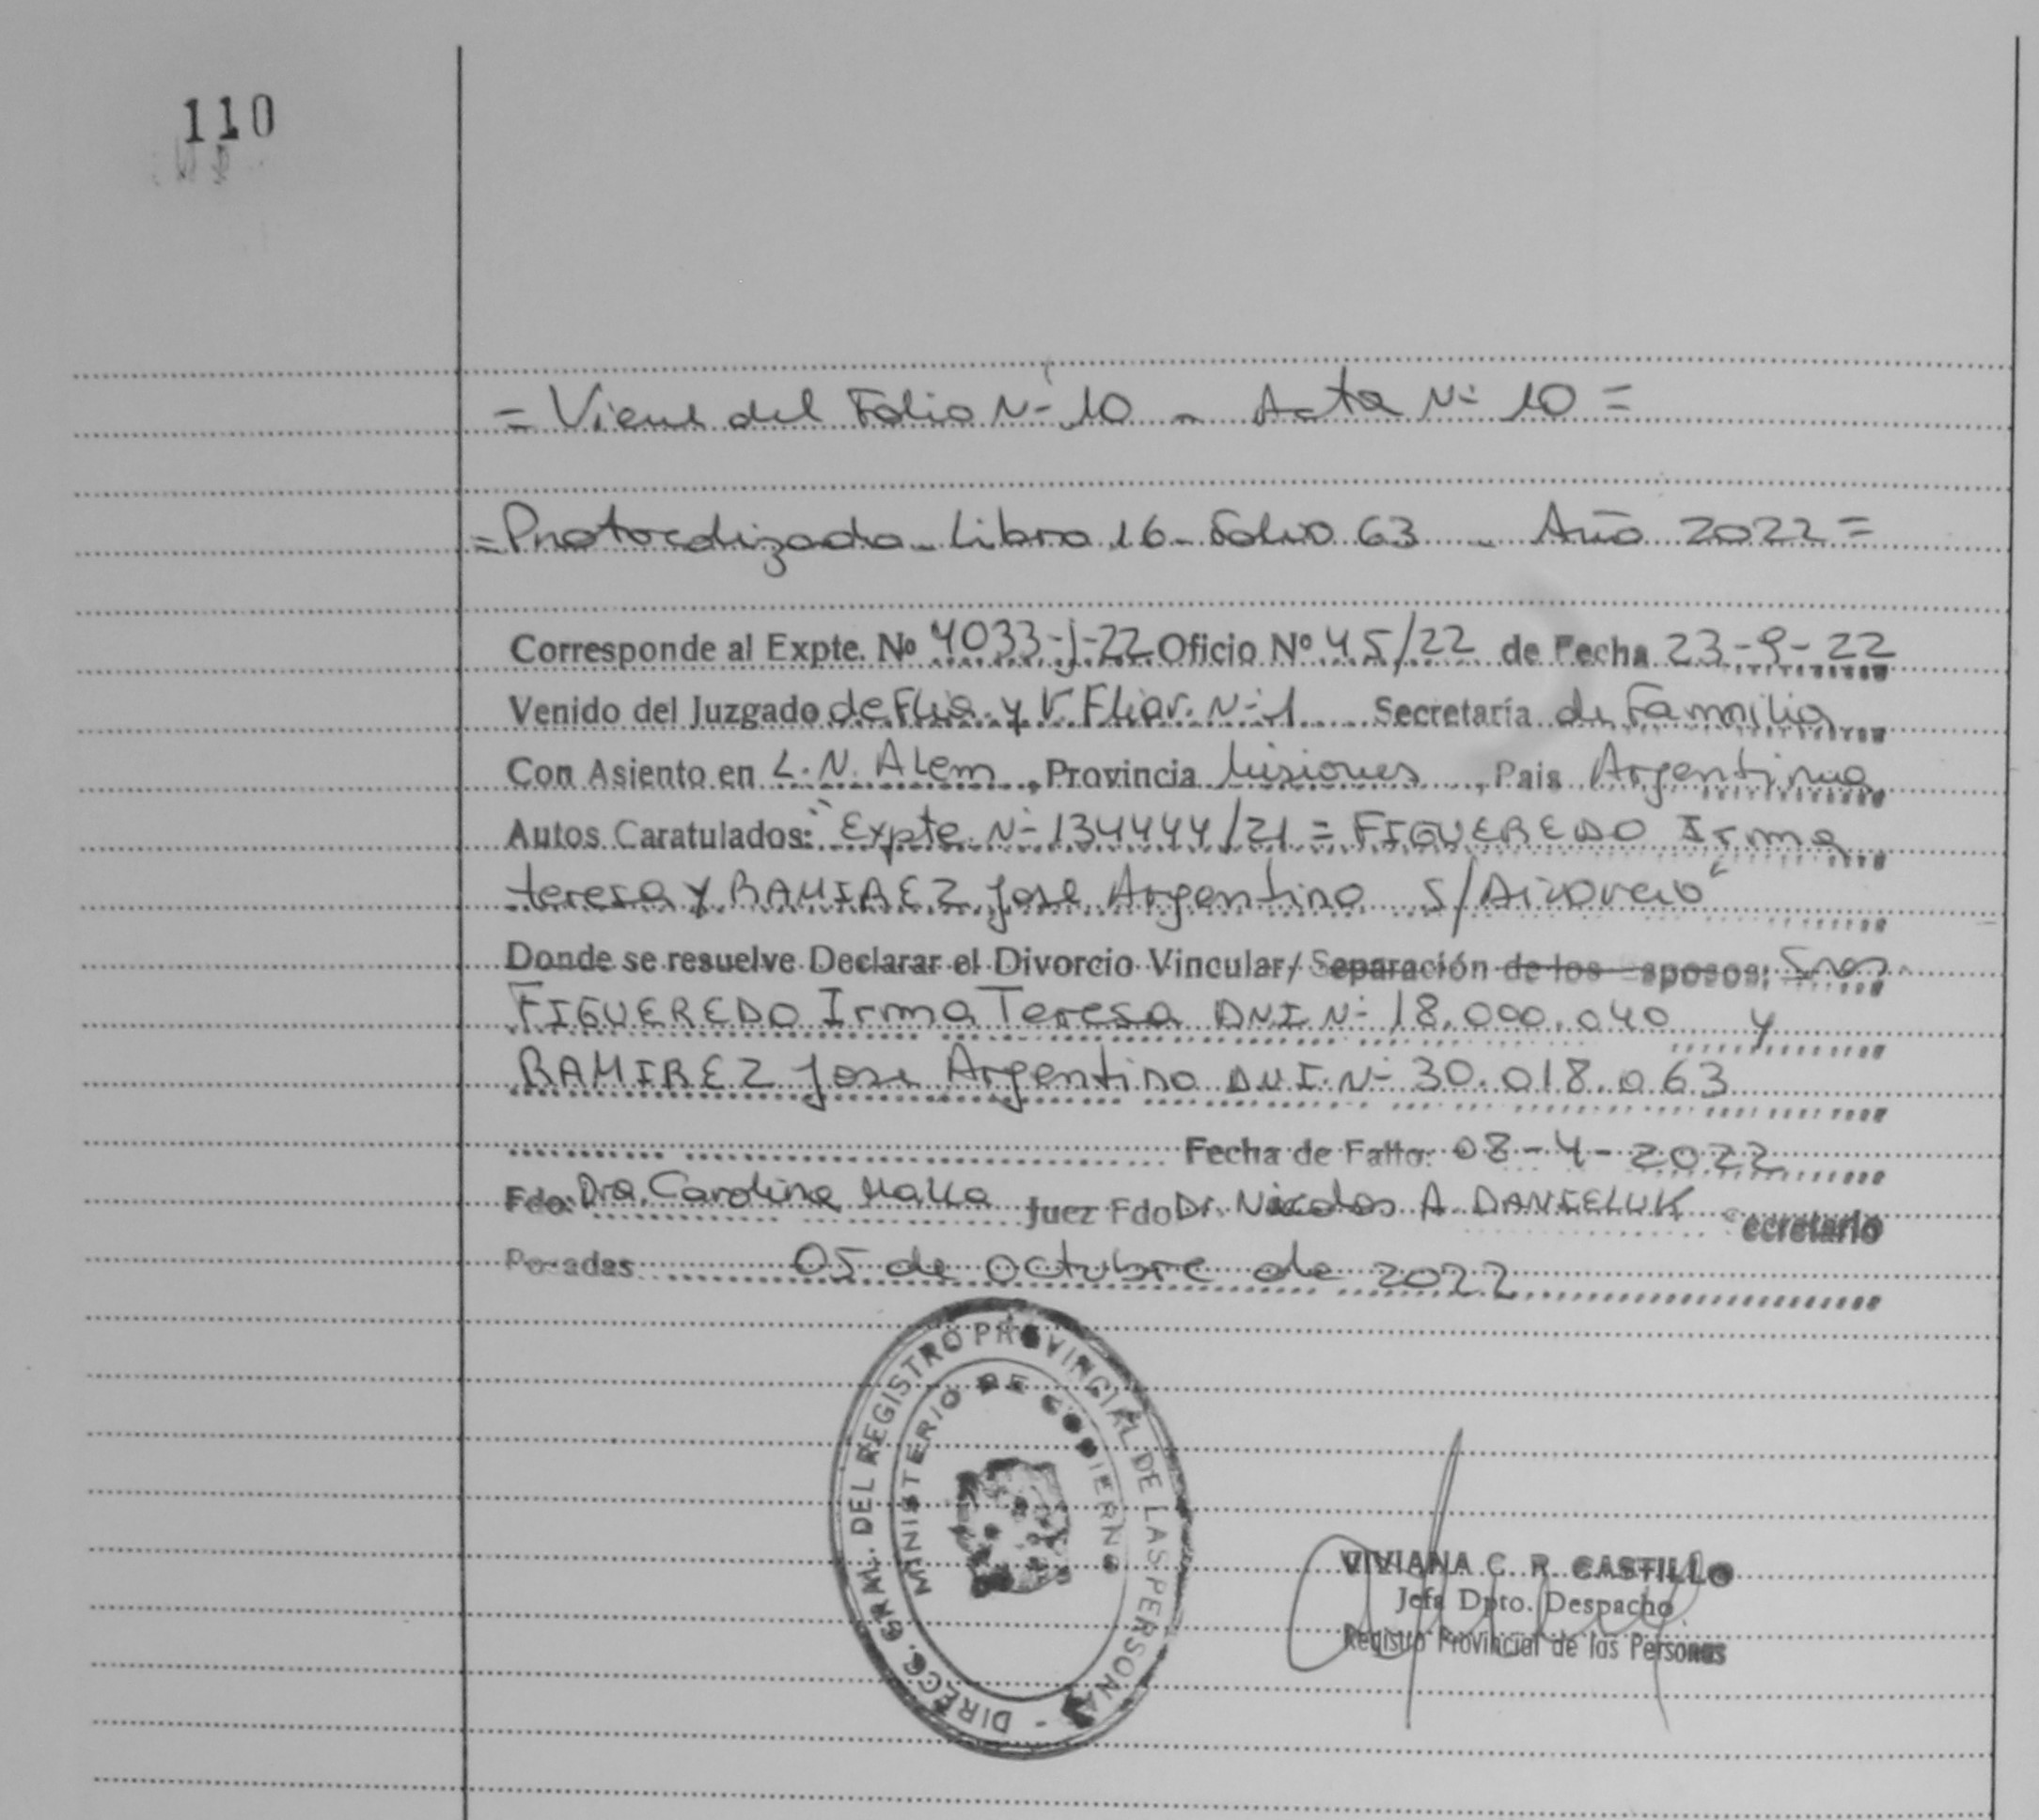 110
= Viene del Folio N- 10 - Acta N- 10 =
= Protocolizado - Libro 16 - Folio 63 - Año 2022 =
Corresponde al Expte. Nº 4033-J-22 Oficio Nº 45/22 de Fecha 23-9-22
Venido del Juzgado de Flia. y V. Fliar. N-1 Secretaría de Familia
Con Asiento en L.N. Alem, Provincia Misiones, Pais Argentina
Autos Caratulados: "Expte N- 134444/21 = FIGUEREDO Irma
teresa y RAMIREZ Jose Argentino S/Divorcio"
Donde se resuelve Declarar el Divorcio Vincular/ Separación de los Esposos: Sres
FIGUEREDO Irma Teresa DNI N- 18.000.040 y
RAMIREZ Jose Argentino DNI. N- 30.018.063
Fecha de Fallo: 08-4-2022
Fdo: Dra. Carolina Malla Juez Fdo Dr. Nicolas A. DANIELUK Secretario
Posadas 05 de octubre de 2022
DIRECC. GRAL. DEL REGISTRO PROVINCIAL DE LAS PERSONAS -
MINISTERIO DE GOBIERNO
VIVIANA C. R. CASTILLO
Jefa Dpto. Despacho
Registro Provincial de las Personas